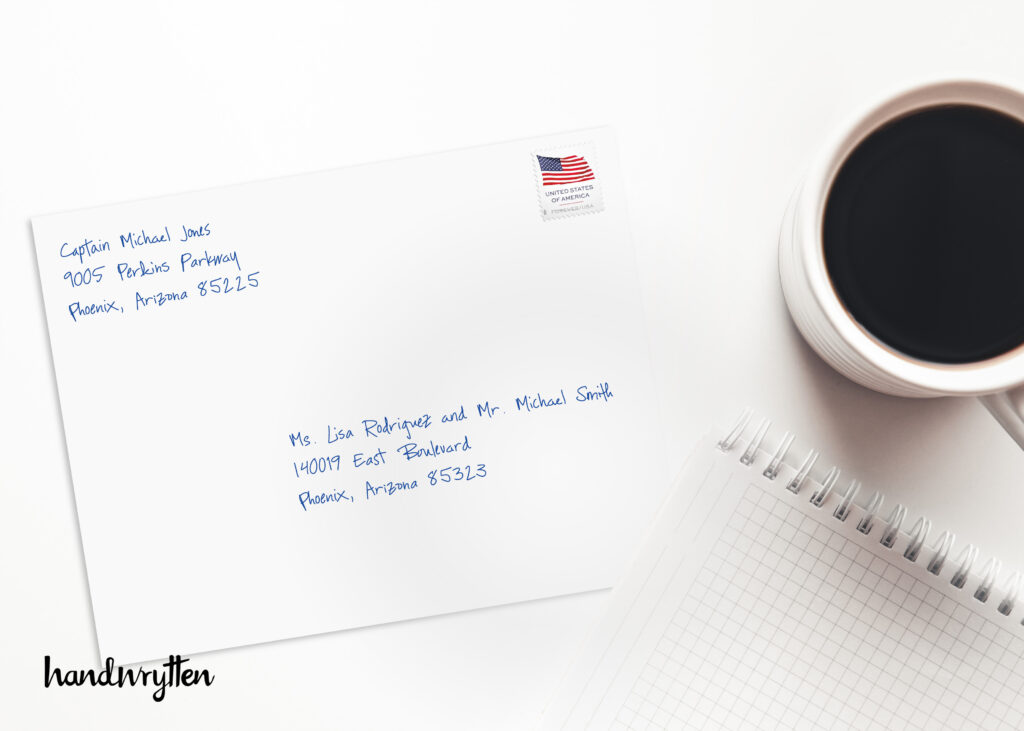 Captain Michael Jones
9005 Perkins Parkway
Phoenix, Arizona 85225
UNITED STATES
OF AMERICA
FOREVER/USA
Ms. Lisa Rodriguez and Mr. Michael Smith
140019 East Boulevard
Phoenix, Arizona 85323
handwrytten